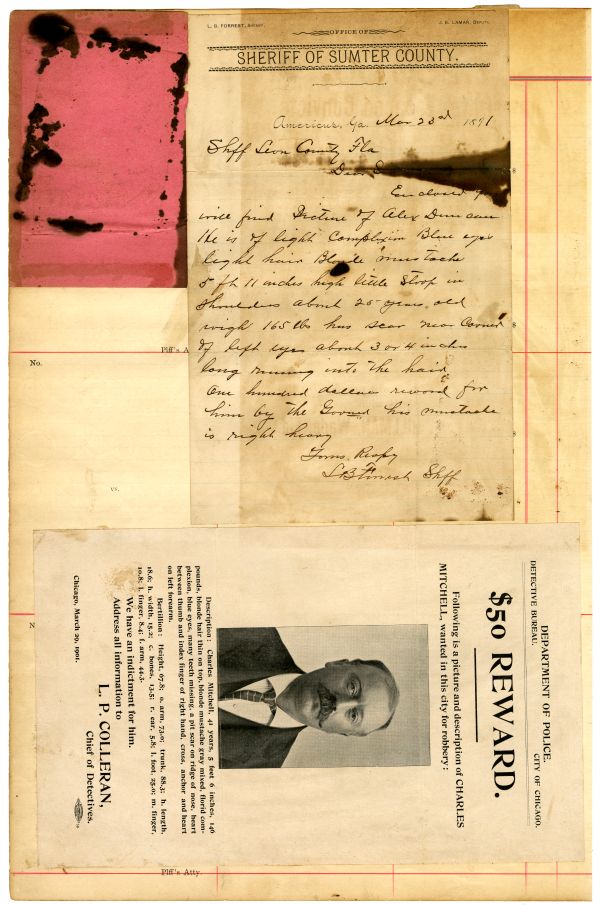 L. B. FORREST, SHERIFF. J. B. LAMAR, DEPUTY.
OFFICE OF
SHERIFF OF SUMTER COUNTY.
Americus, Ga. Mar 23rd 1891
Shff Leon County Fla
Dear
Enclosed
will find Picture of Alex Duncan
He is of light Complexion Blue eyes
light hair Blonde mustache
5 ft 11 inches high little Stoop in
Shoulders about 25 years old
wight 165 lbs has scar near Corner
of left eye about 3 or 4 inches
long running into the hair
One hundred dollars reward for
him by the Govned his mustache
is right heavy
Yours Respy
L B Forrest Shff
Plff's A
No.
vs.
DEPARTMENT OF POLICE.
CITY OF CHICAGO.
DETECTIVE BUREAU.
$50 REWARD.
Following is a picture and description of CHARLES
MITCHELL, wanted in this city for robbery:
Description: Charles Mitchell, 41 years, 5 feet 6 inches, 146
pounds, blonde hair thin on top, blonde mustache gray mixed, florid com-
plexion, blue eyes, many teeth missing, a pit scar on ridge of nose, heart
between thumb and index finger of right hand, cross, anchor and heart
on left forearm.
Bertillion: Height, 67.8; o. arm, 73.0; trunk, 88.3; h. length,
18.6; h. width, 15.2; c. bones, 13.5; r. ear, 5.8; l. foot, 25.0; m. finger,
10.8; l. finger, 8.4; f. arm, 44.3.
We have an indictment for him.
Address all information to
L. P. COLLERAN,
Chief of Detectives.
Chicago, March 29, 1901.
N
Plff's Atty.